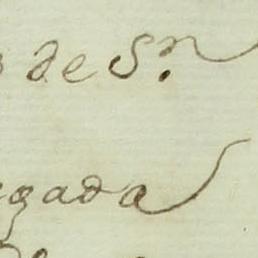 de Sⁿ.
gada